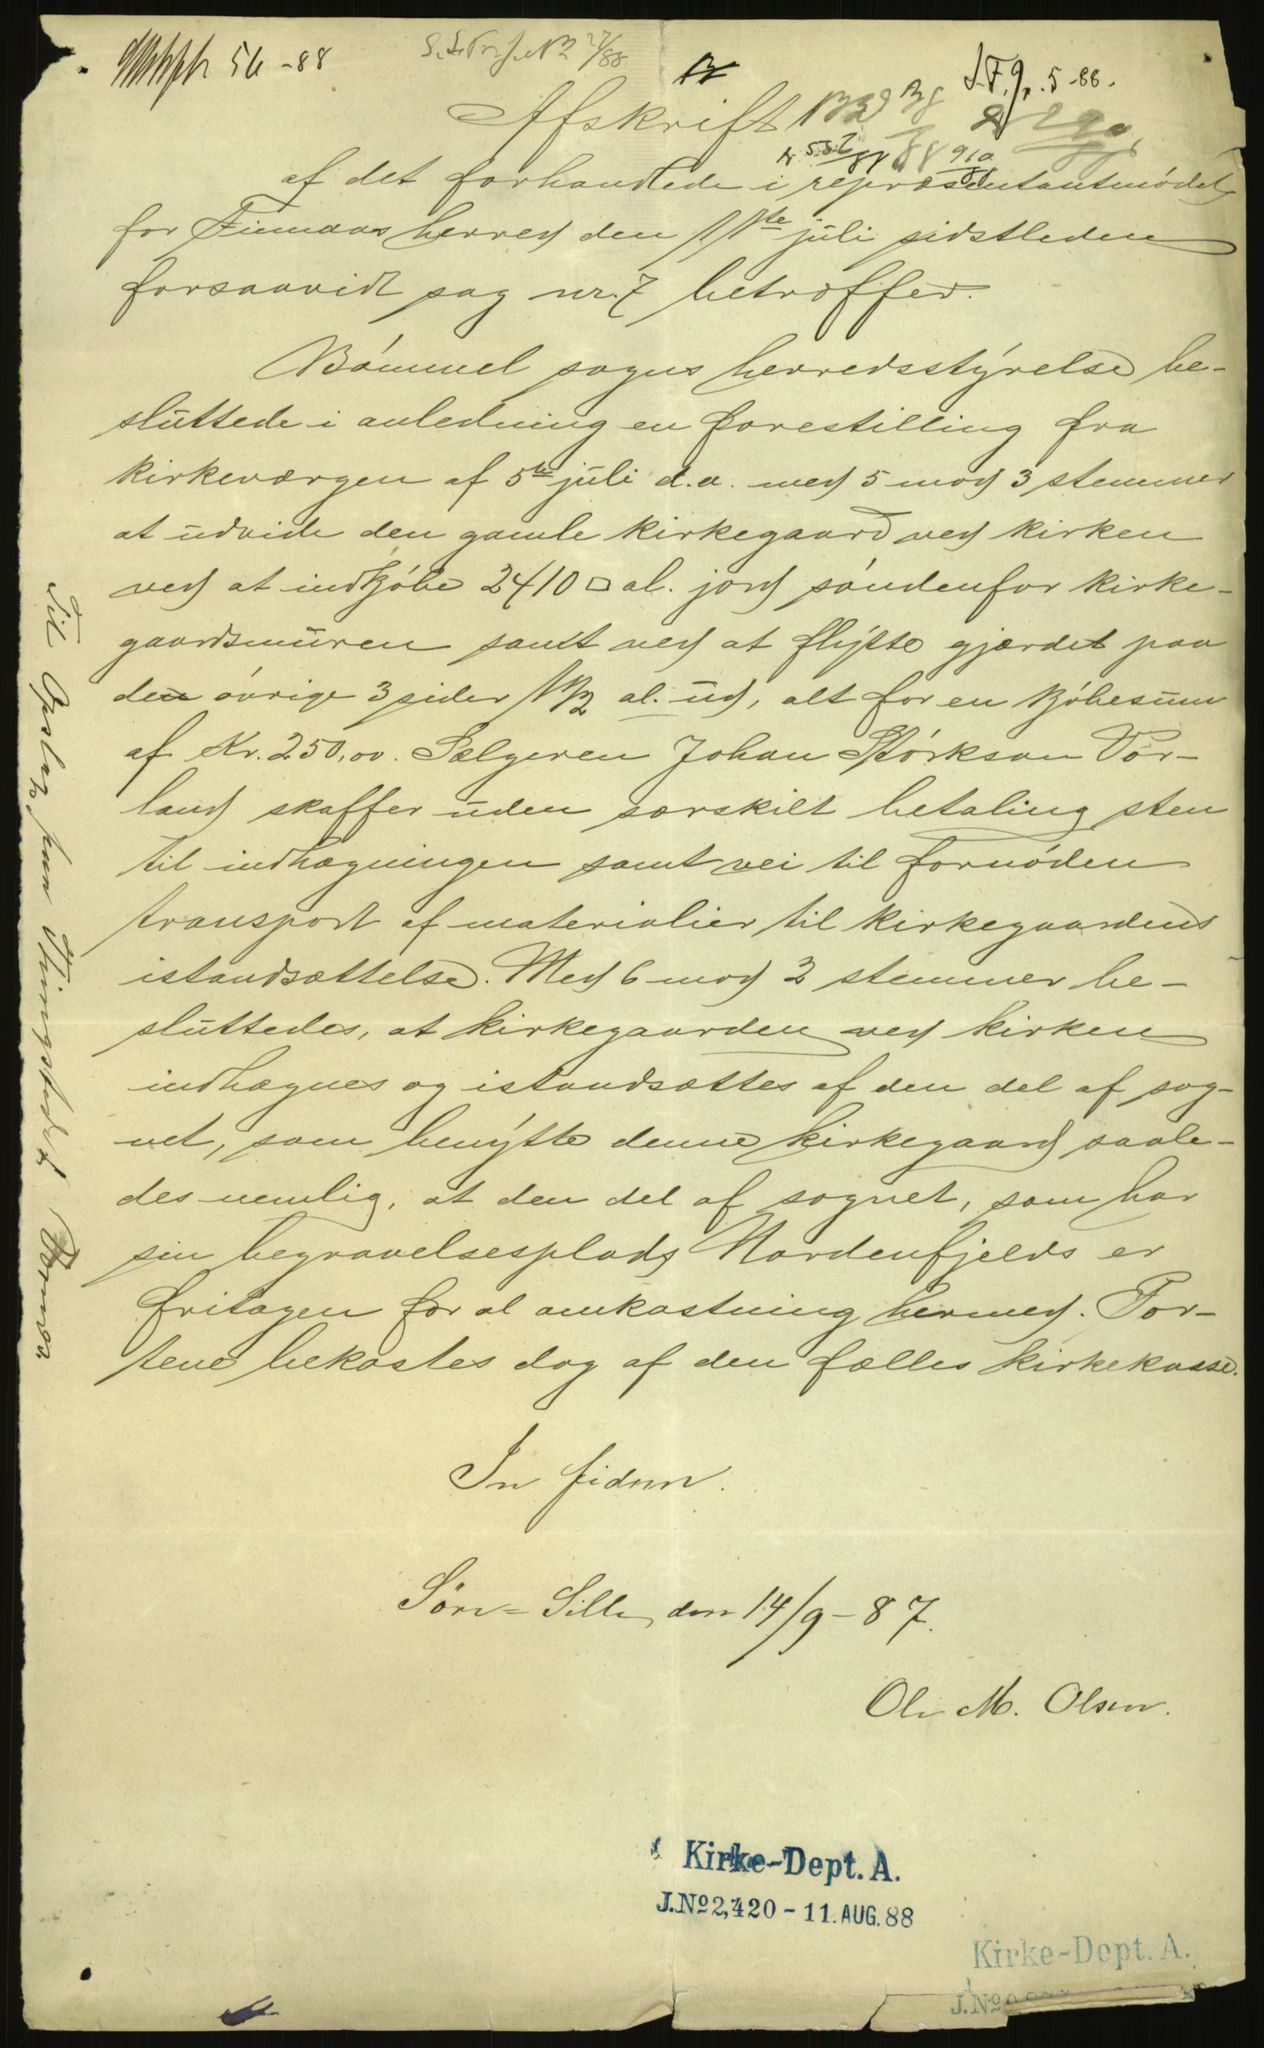 56-88
J.F.Jr. 5-88.
Afskrift
af det forhandlede i repræsentantmødet
for Finnaas herred den 11te juli sidstleden
forsaavidt sag nr. 7 betræffer.
Bømmel sogns herredsstyrelse be-
sluttede i anledning en forestilling fra
kirkeværgen af 5te juli d.a. med 5 mod 3 stemmer
at udvide den gamle kirkegaard ved kirken
ved at indkjøbe 2410 □ al. jord søndenfor kirke-
gaardsmuren samt ved at flytte gjærdet paa
den øvrige 3 sider 1 1/2 al. ud, alt for en kjøbesum
af Kr. 250,00. Sælgeren Johan Størkson Vor-
land skaffer uden særskilt betaling sten
til indhægningen samt vei til fornøden
transport af materialier til kirkegaardens
istandsættelse. Med 6 mod 2 stemmer be-
sluttedes, at kirkegaarden ved kirken
indhægnes og istandsættes af den del af sog-
net, som benytte denne kirkegaard saale-
des nemlig, at den del af sognet, som har
sin begravelsesplads Nordenfjelds er
fritagen for al omkostning hermed. Por-
tene bekostes dog af den fælles kirkekasse.
In fidem.
Sørn-Sille, den 14/9-87.
Ole M. Olsen.
Til Opslag paa Thingstedet
Kirke-Dept. A.
J.No 2,420 - 11. AUG. 88
Kirke-Dept. A.
J.No